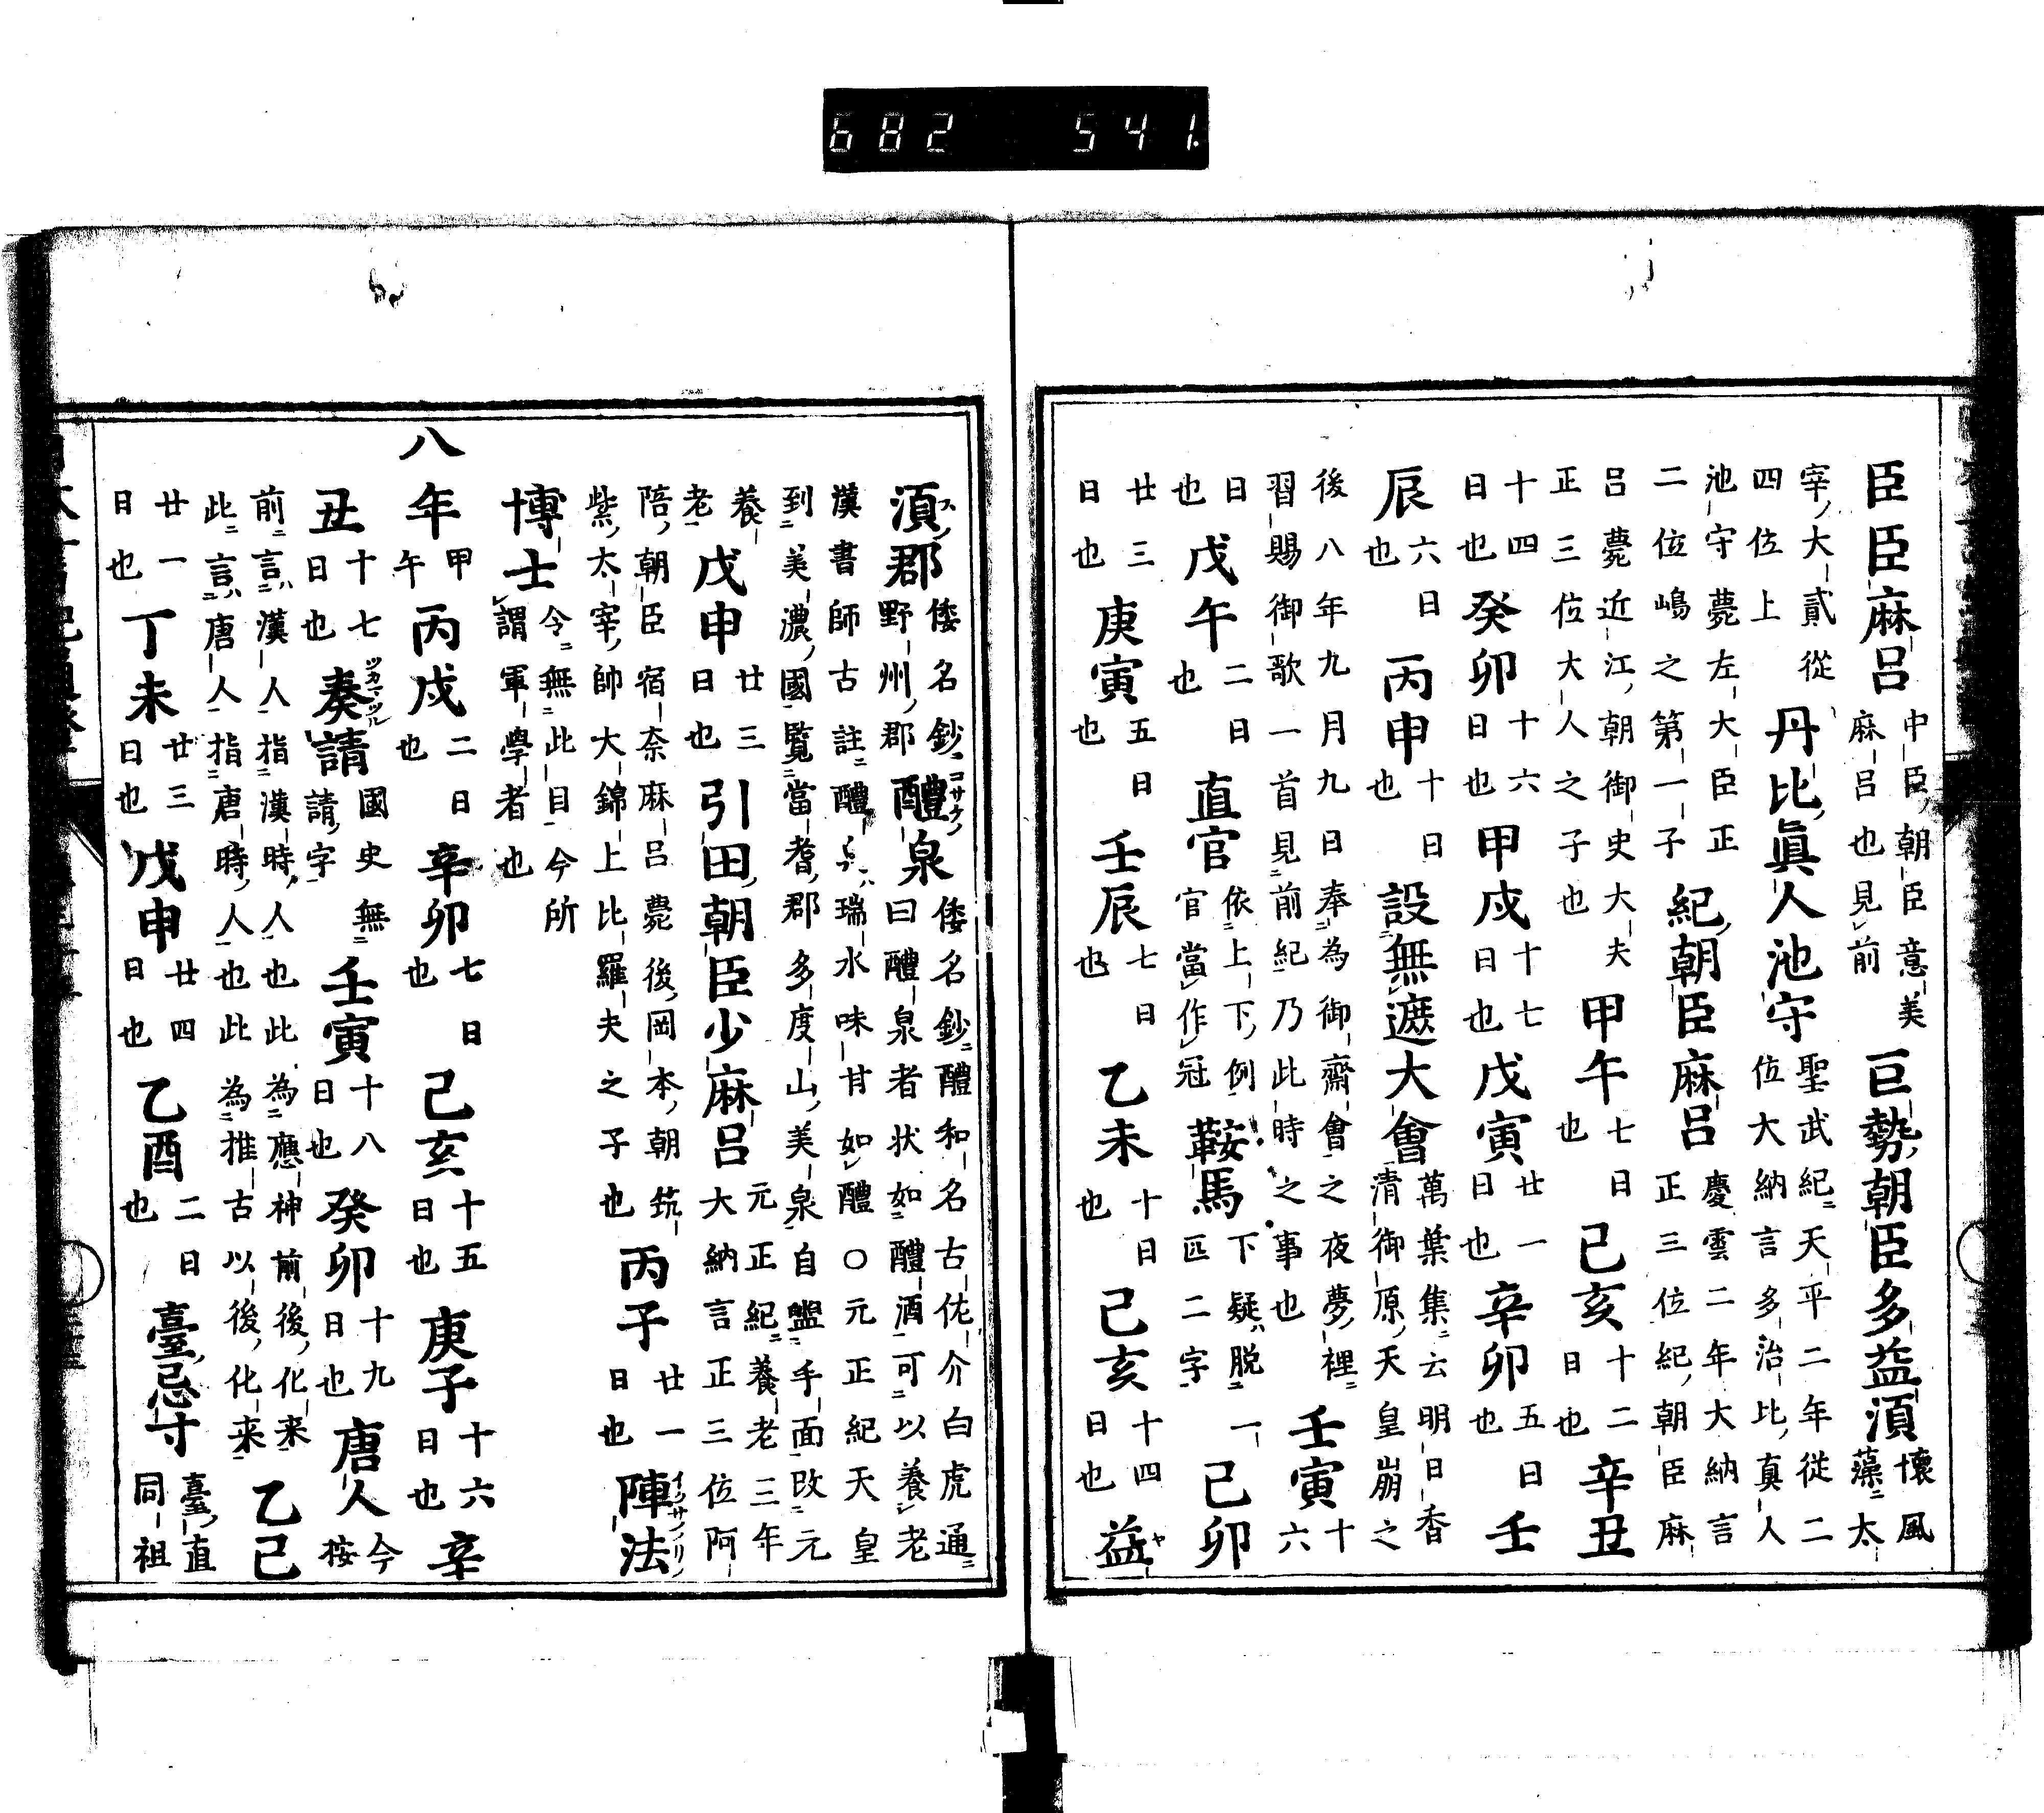 682 541.
臣臣麻呂 中臣朝臣意美麻呂也見前 巨勢朝臣多益湏 懷風藻太
宰大貳從四位上 丹比眞人池守 聖武紀天平二年從二位大納言多治比真人
池守薨左大臣正二位嶋之第一子 紀朝臣麻呂 慶雲二年大納言正三位紀朝臣麻
呂薨近江朝御史大夫正三位大人之子也 甲午 七日也 己亥 十二日也 辛丑
十四日也 癸卯 十六日也 甲戌 十七日也 戊寅 廿一日也 辛卯 五日也 壬
辰 六日也 丙申 十日也 設無遮大會 萬葉集云明日香清御原天皇崩之
後八年九月九日奉為御齋會之夜夢裡習賜御歌一首見前紀乃此時之事也 壬寅 十六
日也 戊午 二日也 直官 依上下例官當作冠 鞍馬 下疑脱匹二字 一 己卯
廿三日也 庚寅 五日也 壬辰 七日也 乙未 十日也 己亥 十四日也 益
湏郡 倭名鈔野州郡 醴泉 倭名鈔醴和名古佐介白虎通曰醴泉者状如醴酒可以養老
漢書師古註醴泉瑞水味甘如醴○元正紀天皇到美濃國覽當耆郡多度山美泉自盥手面改元
養老 戊申 廿三日也 引田朝臣少麻呂 元正紀養老三年大納言正三位阿
陪朝臣宿奈麻呂薨後岡本朝筑紫太宰帥大錦上比羅夫之子也 丙子 廿一日也 陣法
博士 令無此目今所謂軍學者也
八年 甲午 丙戌 二日也 辛卯 七日也 己亥 十五日也 庚子 十六日也 辛
丑 十七日也 奏請 國史無請字 壬寅 十八日也 癸卯 十九日也 唐人 今按
前言漢人指漢時人也此為應神前後化来此言唐人指唐時人也此為推古以後化来 乙巳
廿一日也 丁未 廿三日也 戊申 廿四日也 乙酉 二日也 臺忌寸 臺直同祖